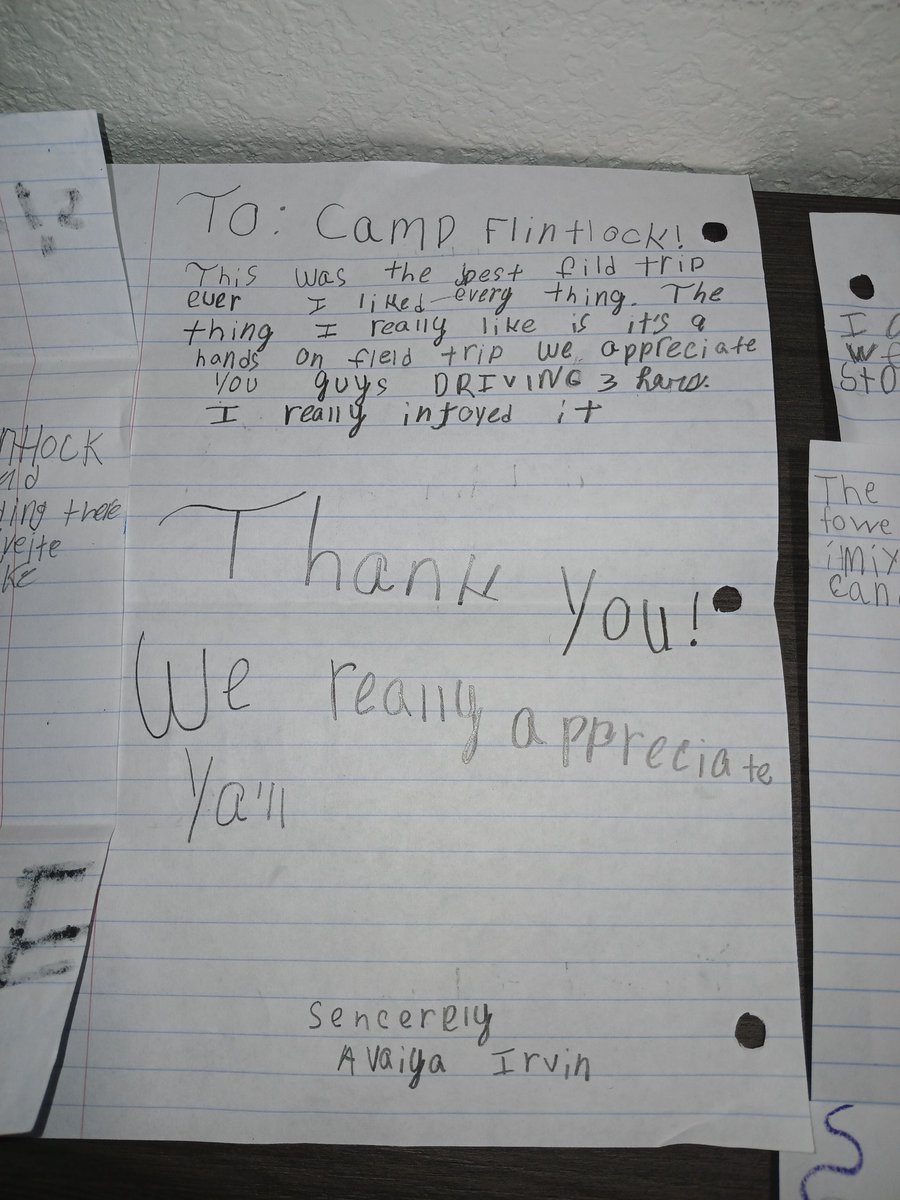 To: Camp Flintlock!
This was the best fild trip
ever I liked every thing. The
thing I really like is it's a
hands on field trip we appreciate
You guys DRIVING 3
I really injoyed it
Thank
You!
We really appreciate
Ya'll
Sencerely
Avaiya Irvin
!?
ntlock
ting there
E
I
The
towe
itmix
can